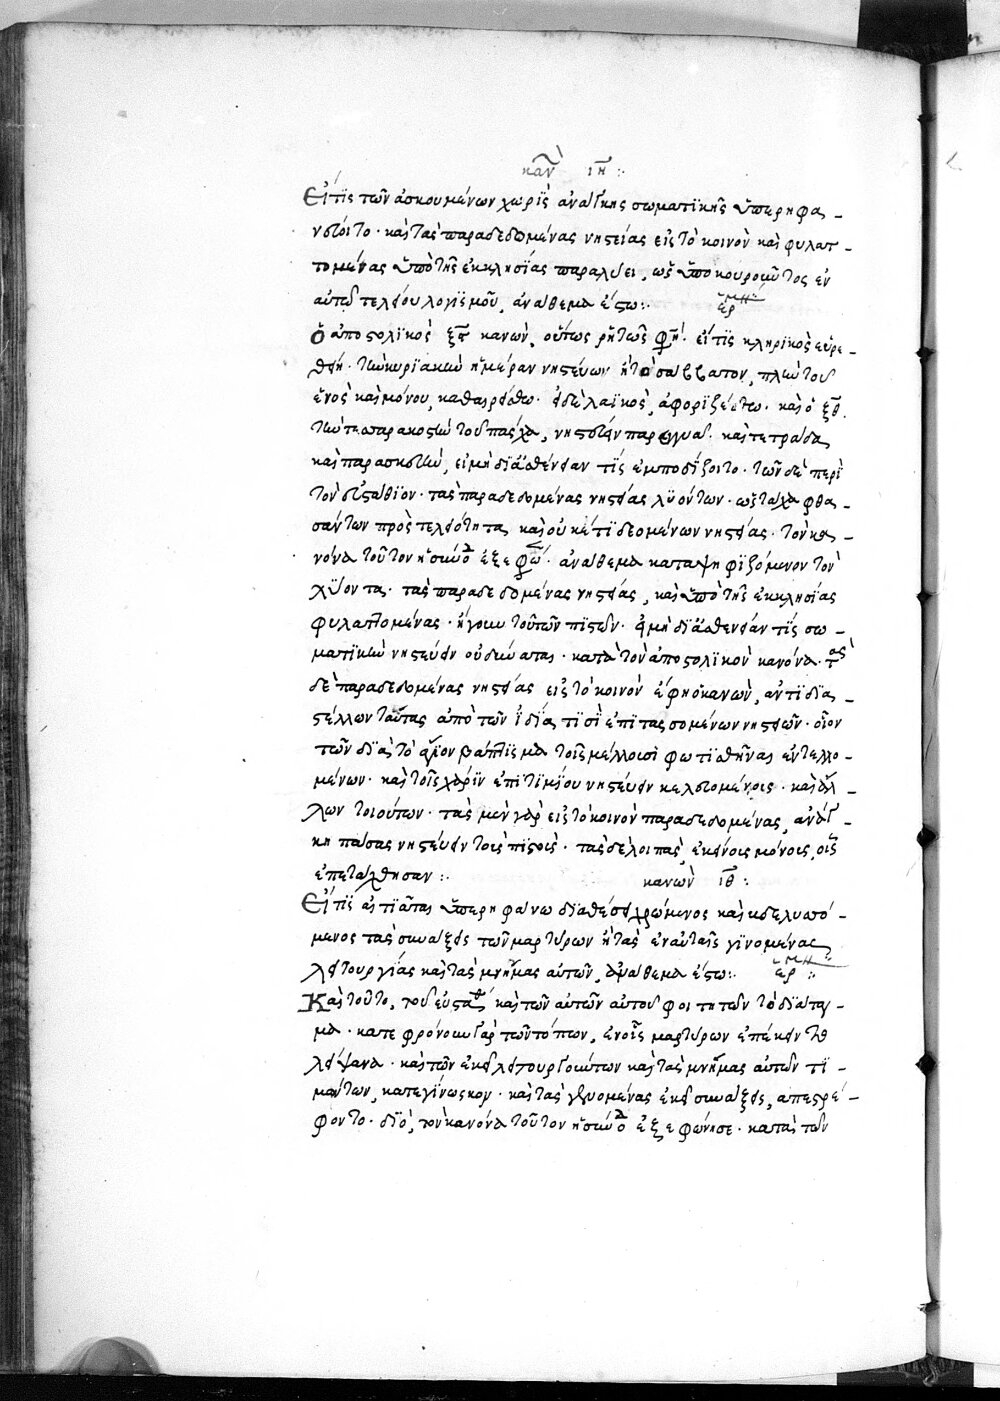 καν ιη :
Εἴ τϊς τῶν ἀσκουμένων χωρὶς ἀνάγκης σωματϊκῆς ὑπερηφα -
νεύοιτο · καὶ τὰς παραδεδομένας νηστείας εἰς τὸ κοινὸν καὶ φυλατ -
τομένας ὑπὸ τῆς ἐκκλησίας παραλύει, ὡς ὑποκουροῦντος ἐν
αὐτῷ τελείου λογϊσμοῦ, ἀνάθεμα ἔστω :
ἑρμη :
Ὁ ἀποστολϊκὸς ξδ κανὼν, οὕτως ῥητῶς φη · εἴ τϊς κληρϊκὸς εὑρε -
θείη · τὴν κυρϊακὴν ἡμέραν νηστεύων ἢ τὸ σάββατον, πλὴν τοῦ
ἑνὸς καὶ μόνου, καθαιρείσθω · εἰ δὲ λαϊκὸς, ἀφορϊζέσθω · καὶ ὁ ξθ
τὴν τεσσαρακοστὴν τοῦ πάσχα, νηστεύειν παρεγγυᾷ · καὶ τετράδα
καὶ παρασκευὴν, εἰ μὴ δϊ' ἀσθένειαν τϊς ἐμποδίζοιτο · τῶν δὲ περὶ
τὸν εὐστάθϊον · τὰς παραδεδομένας νηστείας λϋόντων · ὡς τάχα φθα -
σάντων πρὸς τελειότητα, καὶ οὐκ ἔτϊ δεομένων νηστείας · τὸν κα -
νόνα τοῦτον ἡ σύνοδ ἐξεφων · ἀνάθεμα καταψηφϊζόμενον τῶν
λϋόντα · τὰς παραδεδομένας νηστείας, καὶ ὑπὸ τῆς ἐκκλησίας
φυλαττομένας · ἤγουν τούτων πϊστῶν · εἰ μὴ δϊ' ἀσθένειαν τϊς σω -
ματϊκὴν νηστεύειν οὐ δύναται · κατὰ τὸν ἀποστολϊκὸν κανόνα · τὰς
δὲ παραδεδομένας νηστείας εἰς τὸ κοινὸν ἔφη ὁ κανὼν, ἀντϊδϊα -
στέλλων ταύτας ἀπὸ τῶν ἰδίᾳ τϊσὶ ἐπϊτασσομένων νηστειῶν · οἷον
τῶν δϊὰ τὸ ἅγϊον βάπτϊσμα τοῖς μέλλουσϊ φωτϊσθῆναι ἐντελλο -
μένων · καὶ τοῖς χάρϊν ἐπϊτϊμίου νηστεύειν κελευομένοις · καὶ ἄλ -
λων τοιούτων · τὰς μὲν γὰρ εἰς τὸ κοινὸν παραδεδομένας, ἀνάγ -
κη πάσας νηστεύειν τοῖς πϊστοῖς · τὰς δὲ λοιπὰς, ἐκείνοις μόνοις, οἷς
ἐπετάχθησαν :
κανὼν ιθ :
Εἴ τϊς αἰτϊᾶται ὑπερηφάνῳ δϊαθέσει χρώμενος καὶ βδελυσσό -
μενος τὰς συνάξεις τῶν μαρτύρων ἢ τὰς ἐν αὐταῖς γϊνομένας
λειτουργίας καὶ τὰς μνήμας αὐτῶν, ἀνάθεμα ἔστω :
ἑρμη :
Καὶ τοῦτο, τοῦ εὐσταθ καὶ τῶν αὐτῶν αὐτοῦ φοιτητῶν τὸ δϊάταγ -
μα · κατεφρόνουν γὰρ τῶν τόπων, ἐν οἷς μαρτύρων ἐπέκειντο
λείψανα · καὶ τῶν ἐκεῖ λειτουργούντων καὶ τὰς μνήμας αὐτῶν τϊ -
μώντων, κατεγίνωσκον · καὶ τὰς γϊνομένας ἐκεῖ συνάξεις, ἀπεστρέ -
φοντο · δϊὸ, τὸν κανόνα τοῦτον ἡ σύνοδ ἐξεφώνησε · κατὰ τῶν